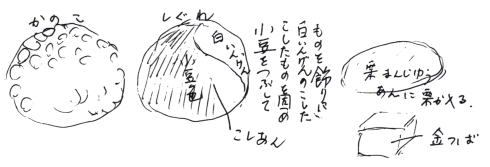 かのこ
しぐれ
白いんげん
小豆色
こしあん
小豆をつぶして
こしたものを固め
白いんげんのこした
ものを飾りに
栗まんじゅう
あんに栗が入る.
金つば